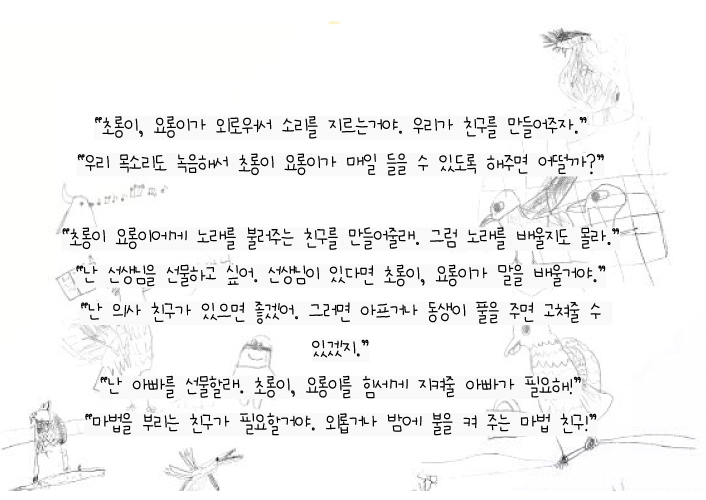 "초롱이, 요롱이가 외로워서 소리를 지르는거야. 우리가 친구를 만들어주자."
"우리 목소리도 녹음해서 초롱이 요롱이가 매일 들을 수 있도록 해주면 어떨까?"
"초롱이 요롱이에게 노래를 불러주는 친구를 만들어줄래. 그럼 노래를 배울지도 몰라."
"난 선생님을 선물하고 싶어. 선생님이 있다면 초롱이, 요롱이가 말을 배울거야."
"난 의사 친구가 있으면 좋겠어. 그러면 아프거나 동생이 풀을 주면 고쳐줄 수
있겠지."
"난 아빠를 선물할래. 초롱이, 요롱이를 힘세게 지켜줄 아빠가 필요해!"
"마법을 부리는 친구가 필요할거야. 외롭거나 밤에 불을 켜 주는 마법 친구!"